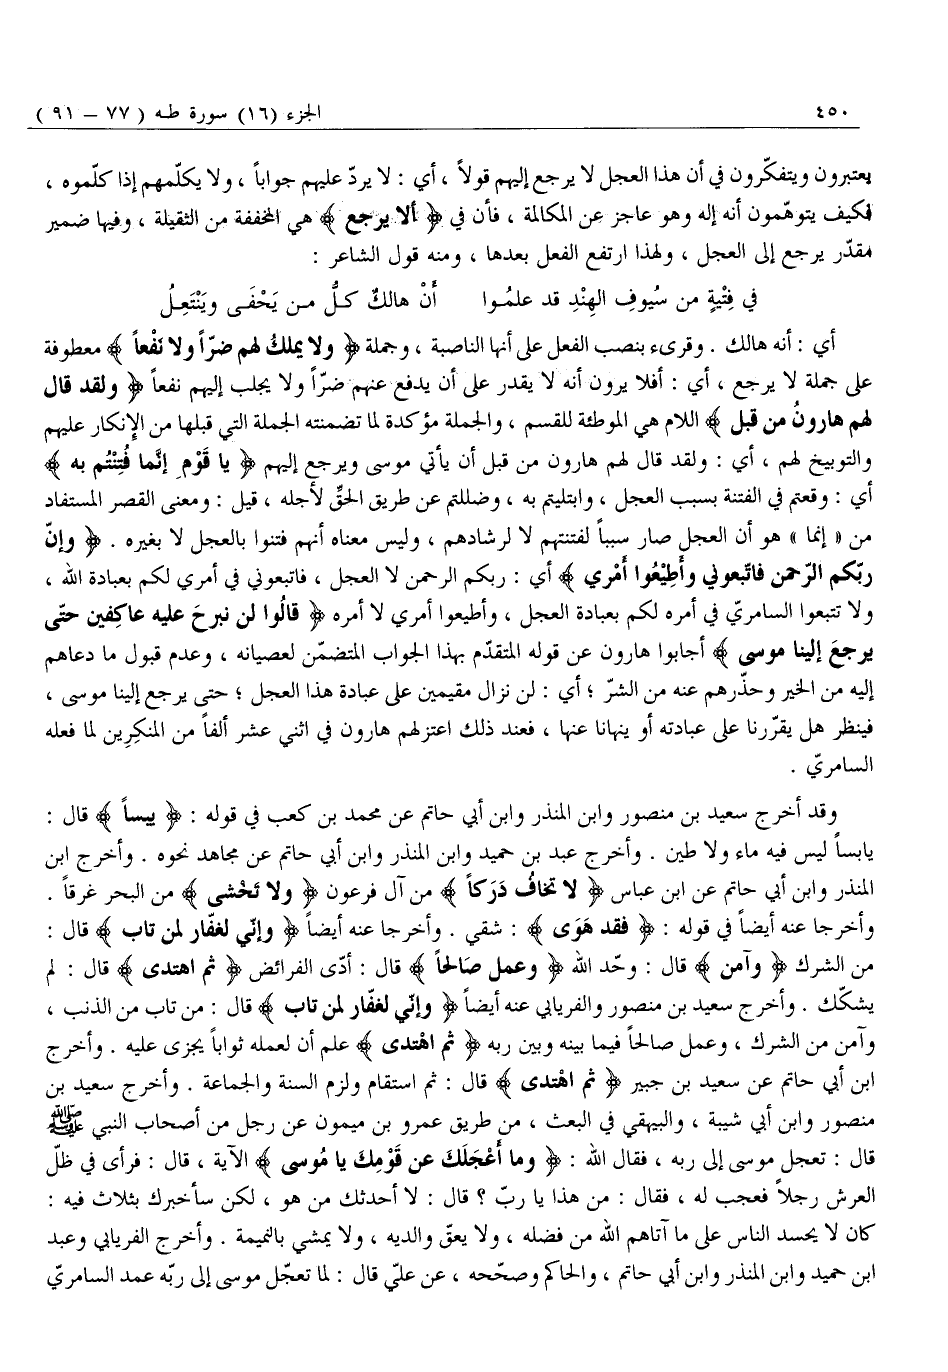 ٤٥٠ الجزء (١٦) سورة طه ( ٧٧ – ٩١ )
يعتبرون ويتفكّرون في أن هذا العجل لا يرجع إليهم قولاً ، أي : لا يردّ عليهم جواباً ، ولا يكلّمهم إذا كلّموه ،
فكيف يتوهّمون أنه إله وهو عاجز عن المكالمة ، فأن في ﴿ ألا يرجع ﴾ هي المخففة من الثقيلة ، وفيها ضمير
مقدّر يرجع إلى العجل ، ولهذا ارتفع الفعل بعدها ، ومنه قول الشاعر :
في فِتْيةٍ من سُيوفِ الهِنْدِ قد علمُـوا أَنْ هالكٌ كـلُّ مـن يَحْفَـى ويَنْتَعِـلُ
أي : أنه هالك . وقرىء بنصب الفعل على أنها الناصبة ، وجملة ﴿ ولا يملكُ لهم ضرّاً ولا نَفْعاً ﴾ معطوفة
على جملة لا يرجع ، أي : أفلا يرون أنه لا يقدر على أن يدفع عنهم ضرّاً ولا يجلب إليهم نفعاً ﴿ ولقد قال
لهم هارونُ من قبل ﴾ اللام هي الموطئة للقسم ، والجملة مؤكدة لما تضمنته الجملة التي قبلها من الإنكار عليهم
والتوبيخ لهم ، أي : ولقد قال لهم هارون من قبل أن يأتي موسى ويرجع إليهم ﴿ يا قَوْمِ إنَّما فُتِنْتُم به ﴾
أي : وقعتم في الفتنة بسبب العجل ، وابتليتم به ، وضللتم عن طريق الحقِّ لأجله ، قيل : ومعنى القصر المستفاد
من « إنما » هو أن العجل صار سبباً لفتنتهم لا لرشادهم ، وليس معناه أنهم فتنوا بالعجل لا بغيره . ﴿ وإنّ
ربّكم الرّحمن فاتّبعوني وأَطِيْعُوا أَمْري ﴾ أي : ربكم الرحمن لا العجل ، فاتبعوني في أمري لكم بعبادة الله ،
ولا تتبعوا السامريّ في أمره لكم بعبادة العجل ، وأطيعوا أمري لا أمره ﴿ قالُوا لن نبرحَ عليه عاكِفين حتّى
يرجعَ إلينا موسى ﴾ أجابوا هارون عن قوله المتقدّم بهذا الجواب المتضمّن لعصيانه ، وعدم قبول ما دعاهم
إليه من الخير وحذّرهم عنه من الشرّ ؛ أي : لن نزال مقيمين على عبادة هذا العجل ؛ حتى يرجع إلينا موسى ،
فينظر هل يقرّرنا على عبادته أو ينهانا عنها ، فعند ذلك اعتزلهم هارون في اثني عشر ألفاً من المنكِرِين لما فعله
السامريّ .
وقد أخرج سعيد بن منصور وابن المنذر وابن أبي حاتم عن محمد بن كعب في قوله : ﴿ يبساً ﴾ قال :
يابساً ليس فيه ماء ولا طين . وأخرج عبد بن حميد وابن المنذر وابن أبي حاتم عن مجاهد نحوه . وأخرج ابن
المنذر وابن أبي حاتم عن ابن عباس ﴿ لا تخافُ دَرَكاً ﴾ من آل فرعون ﴿ ولا تَخْشى ﴾ من البحر غرقاً .
وأخرجا عنه أيضاً في قوله : ﴿ فقد هَوَى ﴾ : شقي . وأخرجا عنه أيضاً ﴿ وإنّي لغفّار لمن تاب ﴾ قال :
من الشرك ﴿ وآمن ﴾ قال : وحّد الله ﴿ وعمل صَالحاً ﴾ قال : أدّى الفرائض ﴿ ثم اهتدى ﴾ قال : لم
يشكّك . وأخرج سعيد بن منصور والفريابي عنه أيضاً ﴿ وإنّي لغفّار لمن تاب ﴾ قال : من تاب من الذنب ،
وآمن من الشرك ، وعمل صالحاً فيما بينه وبين ربه ﴿ ثم اهْتدى ﴾ علم أن لعمله ثواباً يجزى عليه . وأخرج
ابن أبي حاتم عن سعيد بن جبير ﴿ ثم اهْتدى ﴾ قال : ثم استقام ولزم السنة والجماعة . وأخرج سعيد بن
منصور وابن أبي شيبة ، والبيهقي في البعث ، من طريق عمرو بن ميمون عن رجل من أصحاب النبي ﷺ
قال : تعجل موسى إلى ربه ، فقال الله : ﴿ وما أَعْجَلَكَ عن قَوْمِكَ يا مُوسى ﴾ الآية ، قال : فرأى في ظلّ
العرش رجلاً فعجب له ، فقال : من هذا يا ربّ ؟ قال : لا أحدثك من هو ، لكن سأخبرك بثلاث فيه :
كان لا يحسد الناس على ما آتاهم الله من فضله ، ولا يعقّ والديه ، ولا يمشي بالنميمة . وأخرج الفريابي وعبد
ابن حميد وابن المنذر وابن أبي حاتم ، والحاكم وصحّحه ، عن عليّ قال : لما تعجّل موسى إلى ربّه عمد السامريّ